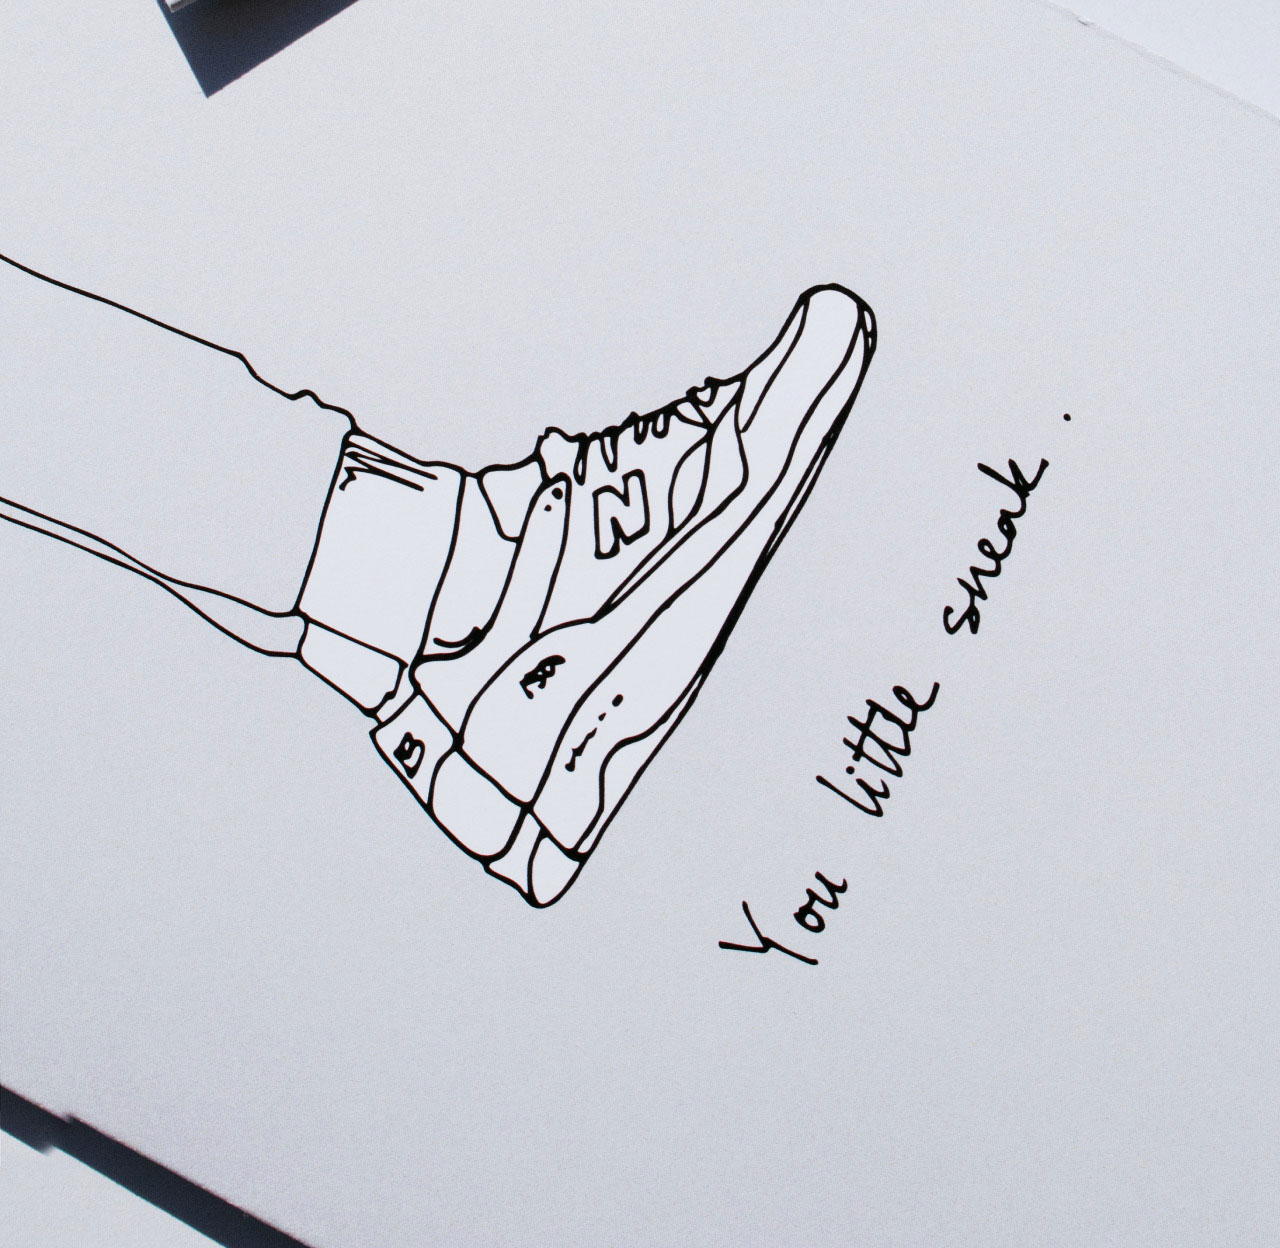 You little sneak.
N